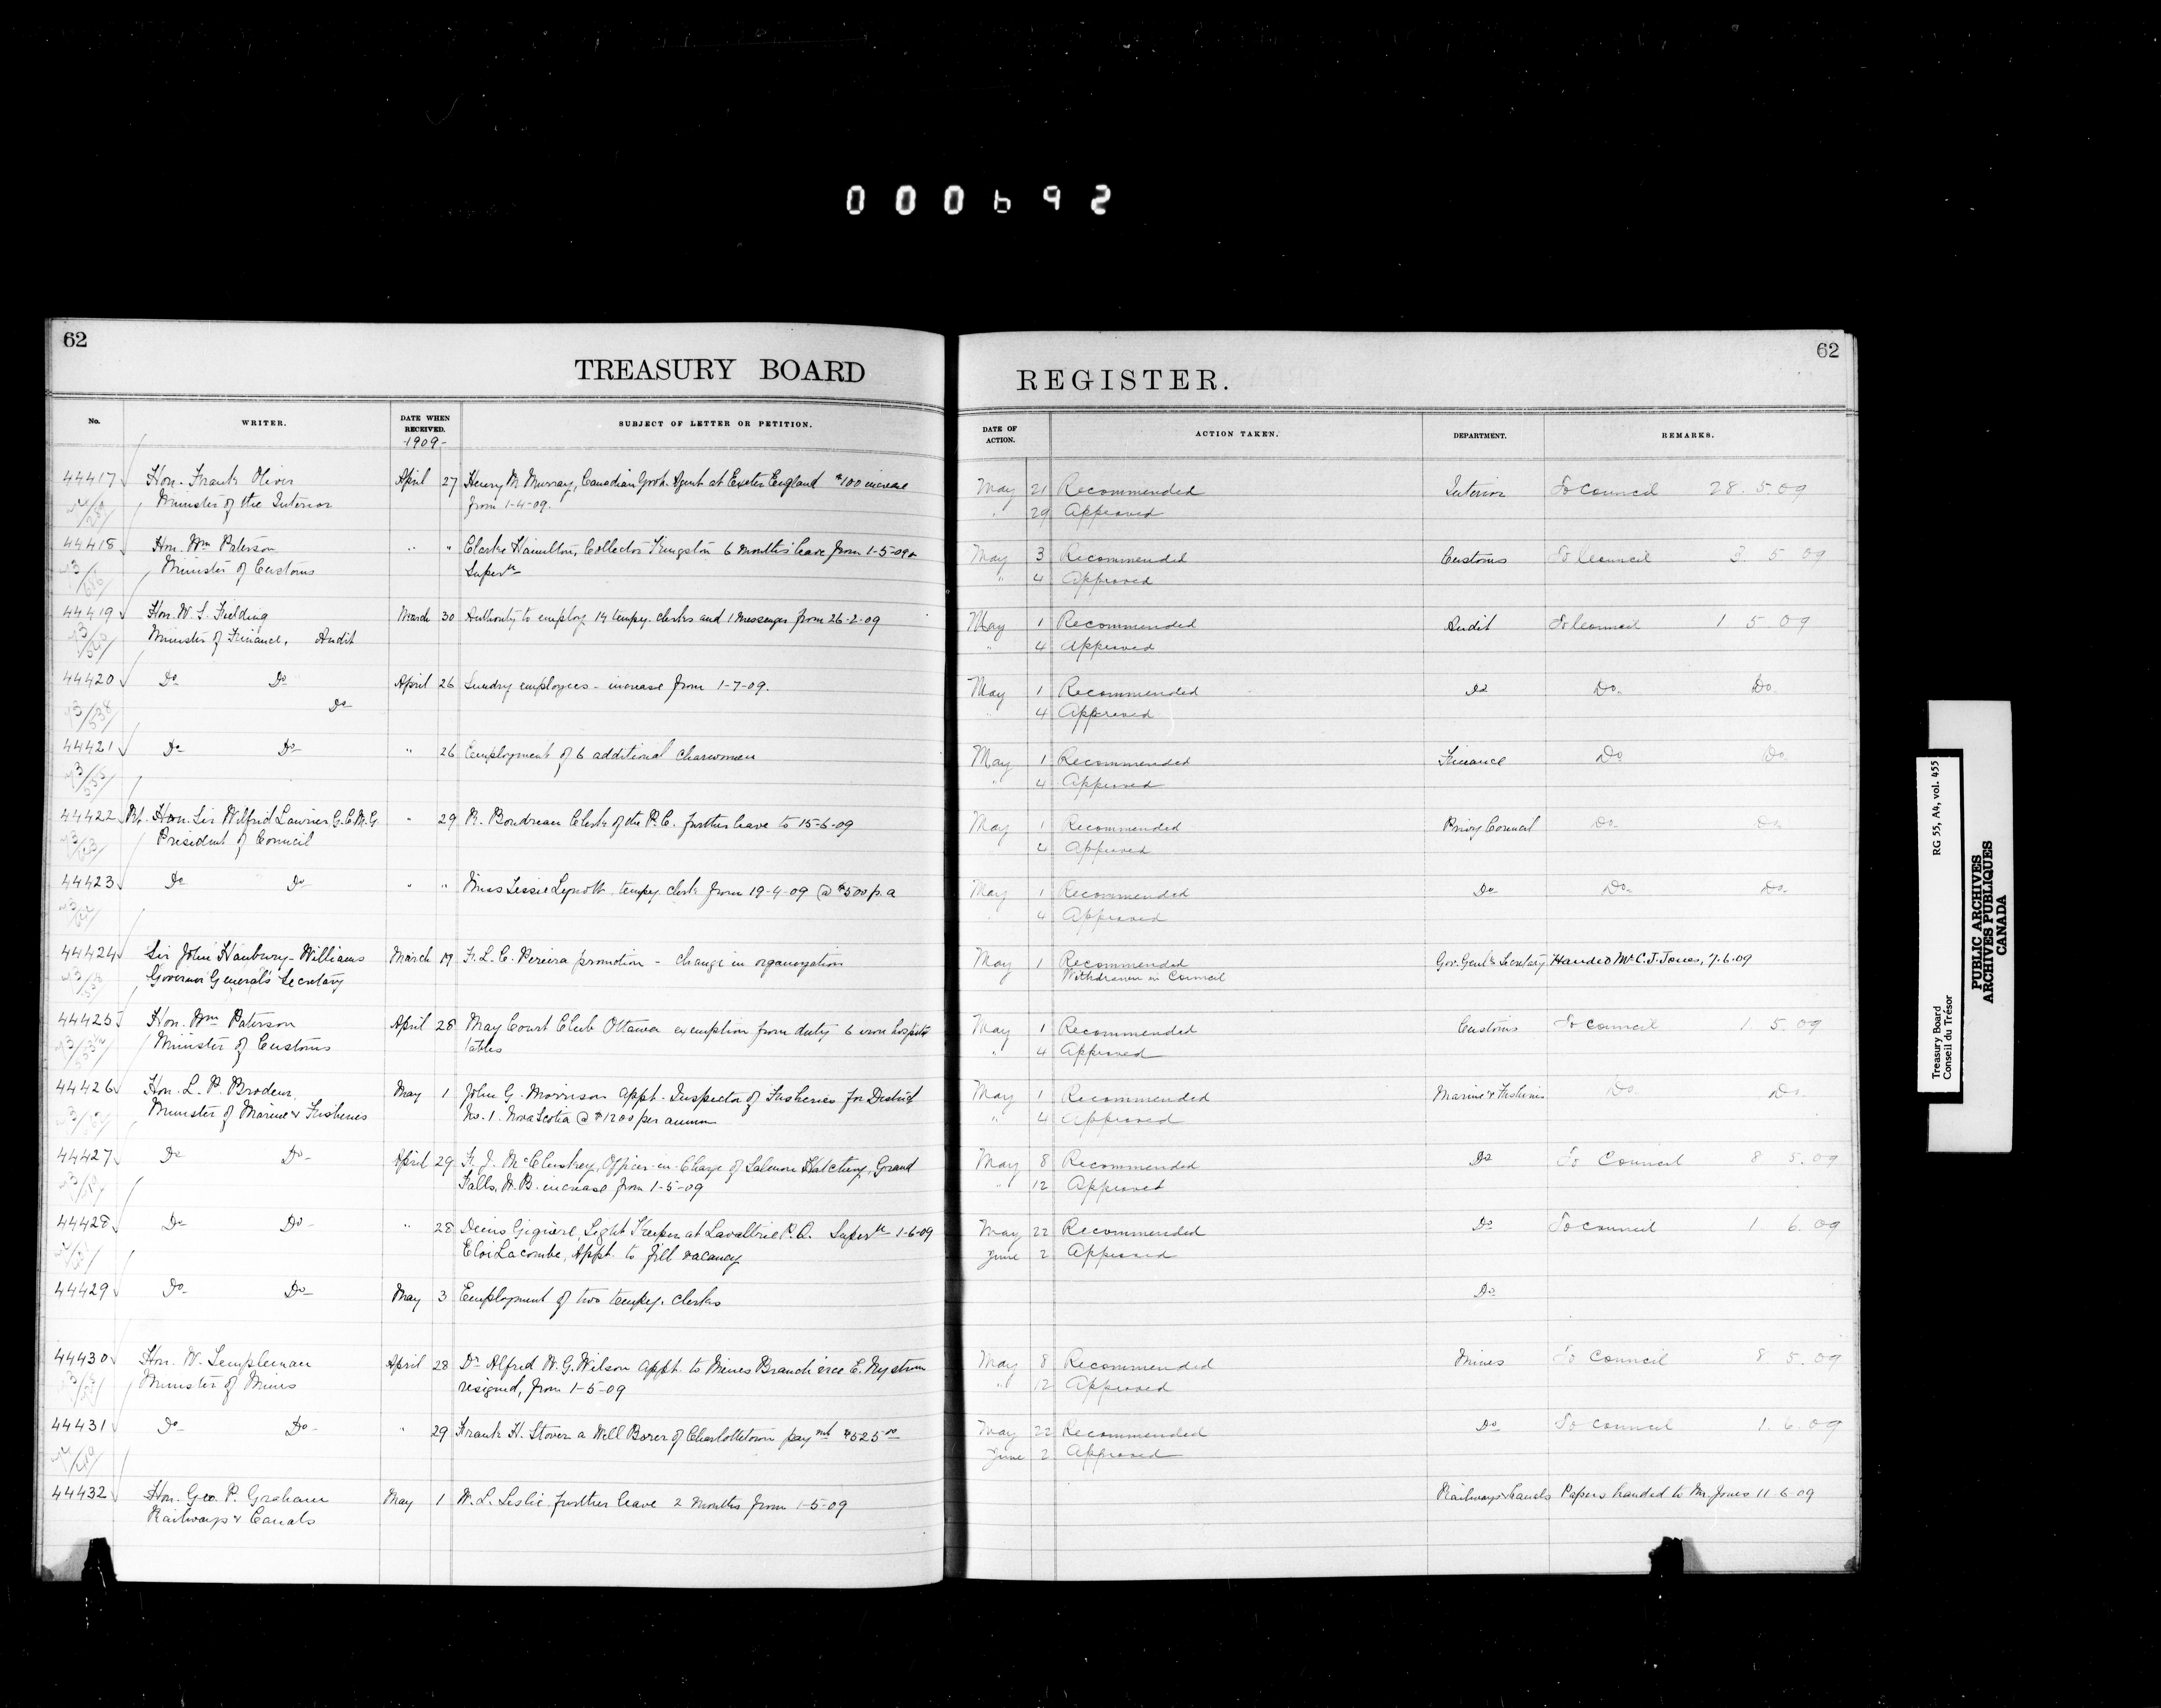 000692
62
TREASURY BOARD
No.
WRITER.
DATE WHEN RECEIVED.
-1909-
SUBJECT OF LETTER OR PETITION.
44417 Hon. Frank Oliver April 27 Henry M. Murray, Canadian Govt. Agent at Exeter England $100 increase
Minister of the Interior from 1-4-09.
44418 Hon. Wm Paterson " " Clarke Hamilton, Collector Kingston 6 months leave from 1-5-09 &
Minister of Customs Supern
44419 Hon. W. S. Fielding March 30 Authority to employ 14 tempy. clerks and 1 messenger from 26-2-09
Minister of Finance, Audit
44420 Do Do April 26 Sundry employees - increase from 1-7-09.
Do
44421 Do Do " 26 Employment of 6 additional charwomen
44422 Rt. Hon. Sir Wilfrid Laurier G.C.M.G. " 29 R. Boudreau Clerk of the P.C. further leave to 15-6-09
President of Council
44423 Do Do " " Miss Lessie tempy. clerk from 19-4-09 @ $500 p.a
44424 Sir John Hanbury-Williams March 17 F. L. C. Pereira promotion - change in organization
Governor General's Secretary
44425 Hon. Wm Paterson April 28 May Court Club Ottawa exemption from duty 6 iron hospital
Minister of Customs tables
44426 Hon. L. P. Brodeur, May 1 John G. Morrison Appt. Inspector of Fisheries for District
Minister of Marine & Fisheries No. 1. Nova Scotia @ $1200 per annum
44427 Do Do April 29 F. J. McCluskey, Officer-in-Charge of Salmon Hatchery, Grand
Falls, N.B. increase from 1-5-09
44428 Do Do " 28 Denis Giguère, Light Keeper at Lavaltrie P.Q. Supern 1-6-09
Eloi Lacombe, Appt. to fill vacancy
44429 Do Do May 3 Employment of two tempy. clerks
44430 Hon. W. Templeman April 28 Dr Alfred W. G. Wilson appt. to Mines Branch vice E. Nystrom
Minister of Mines resigned, from 1-5-09
44431 Do Do " 29 Frank H. Stover a Well Borer of Charlottetown paymt $525.00
44432 Hon. Geo. P. Graham May 1 W. L. Leslie further leave 2 months from 1-5-09
Railways & Canals
62
REGISTER.
DATE OF ACTION.
ACTION TAKEN.
DEPARTMENT.
REMARKS.
May 21 Recommended Interior To Council 28.5.09
" 29 Approved
May 3 Recommended Customs To Council 3 5 09
" 4 Approved
May 1 Recommended Audit To Council 1 5 09
" 4 Approved
May 1 Recommended Do Do Do
" 4 Approved
May 1 Recommended Finance Do Do
" 4 Approved
May 1 Recommended Privy Council Do Do
4 Approved
May 1 Recommended Do Do Do
" 4 Approved
May 1 Recommended Gov. Genl's Secretary Handed Mr C. J. Jones, 7.6.09
Withdrawn in Council
May 1 Recommended Customs To Council 1 5.09
" 4 Approved
May 1 Recommended Marine & Fisheries Do Do
" 4 Approved
May 8 Recommended Do To Council 8 5.09
" 12 Approved
May 22 Recommended Do To Council 1 6.09
June 2 Approved
Do
May 8 Recommended Mines To Council 8 5.09
" 12 Approved
May 22 Recommended Do To Council 1.6.09
June 2 Approved
Railways & Canals Papers handed to Mr. Jones 11-6-09
Treasury Board RG 55, A4, vol. 455
Conseil du Trésor
PUBLIC ARCHIVES
ARCHIVES PUBLIQUES
CANADA